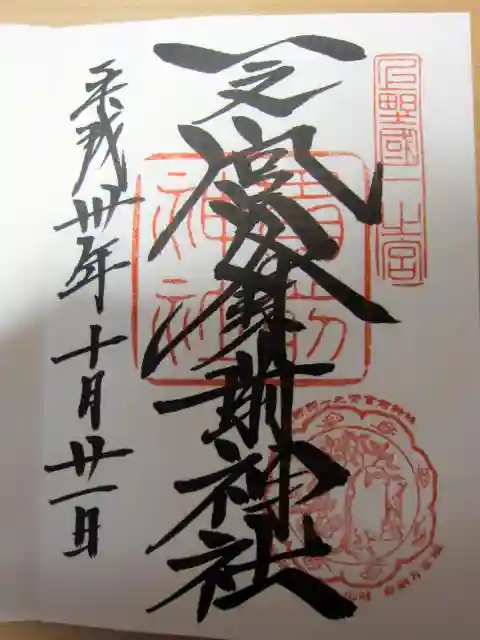 上野國一之宮
一之宮貫前神社
貫前神社
平成卅年十月廿一日